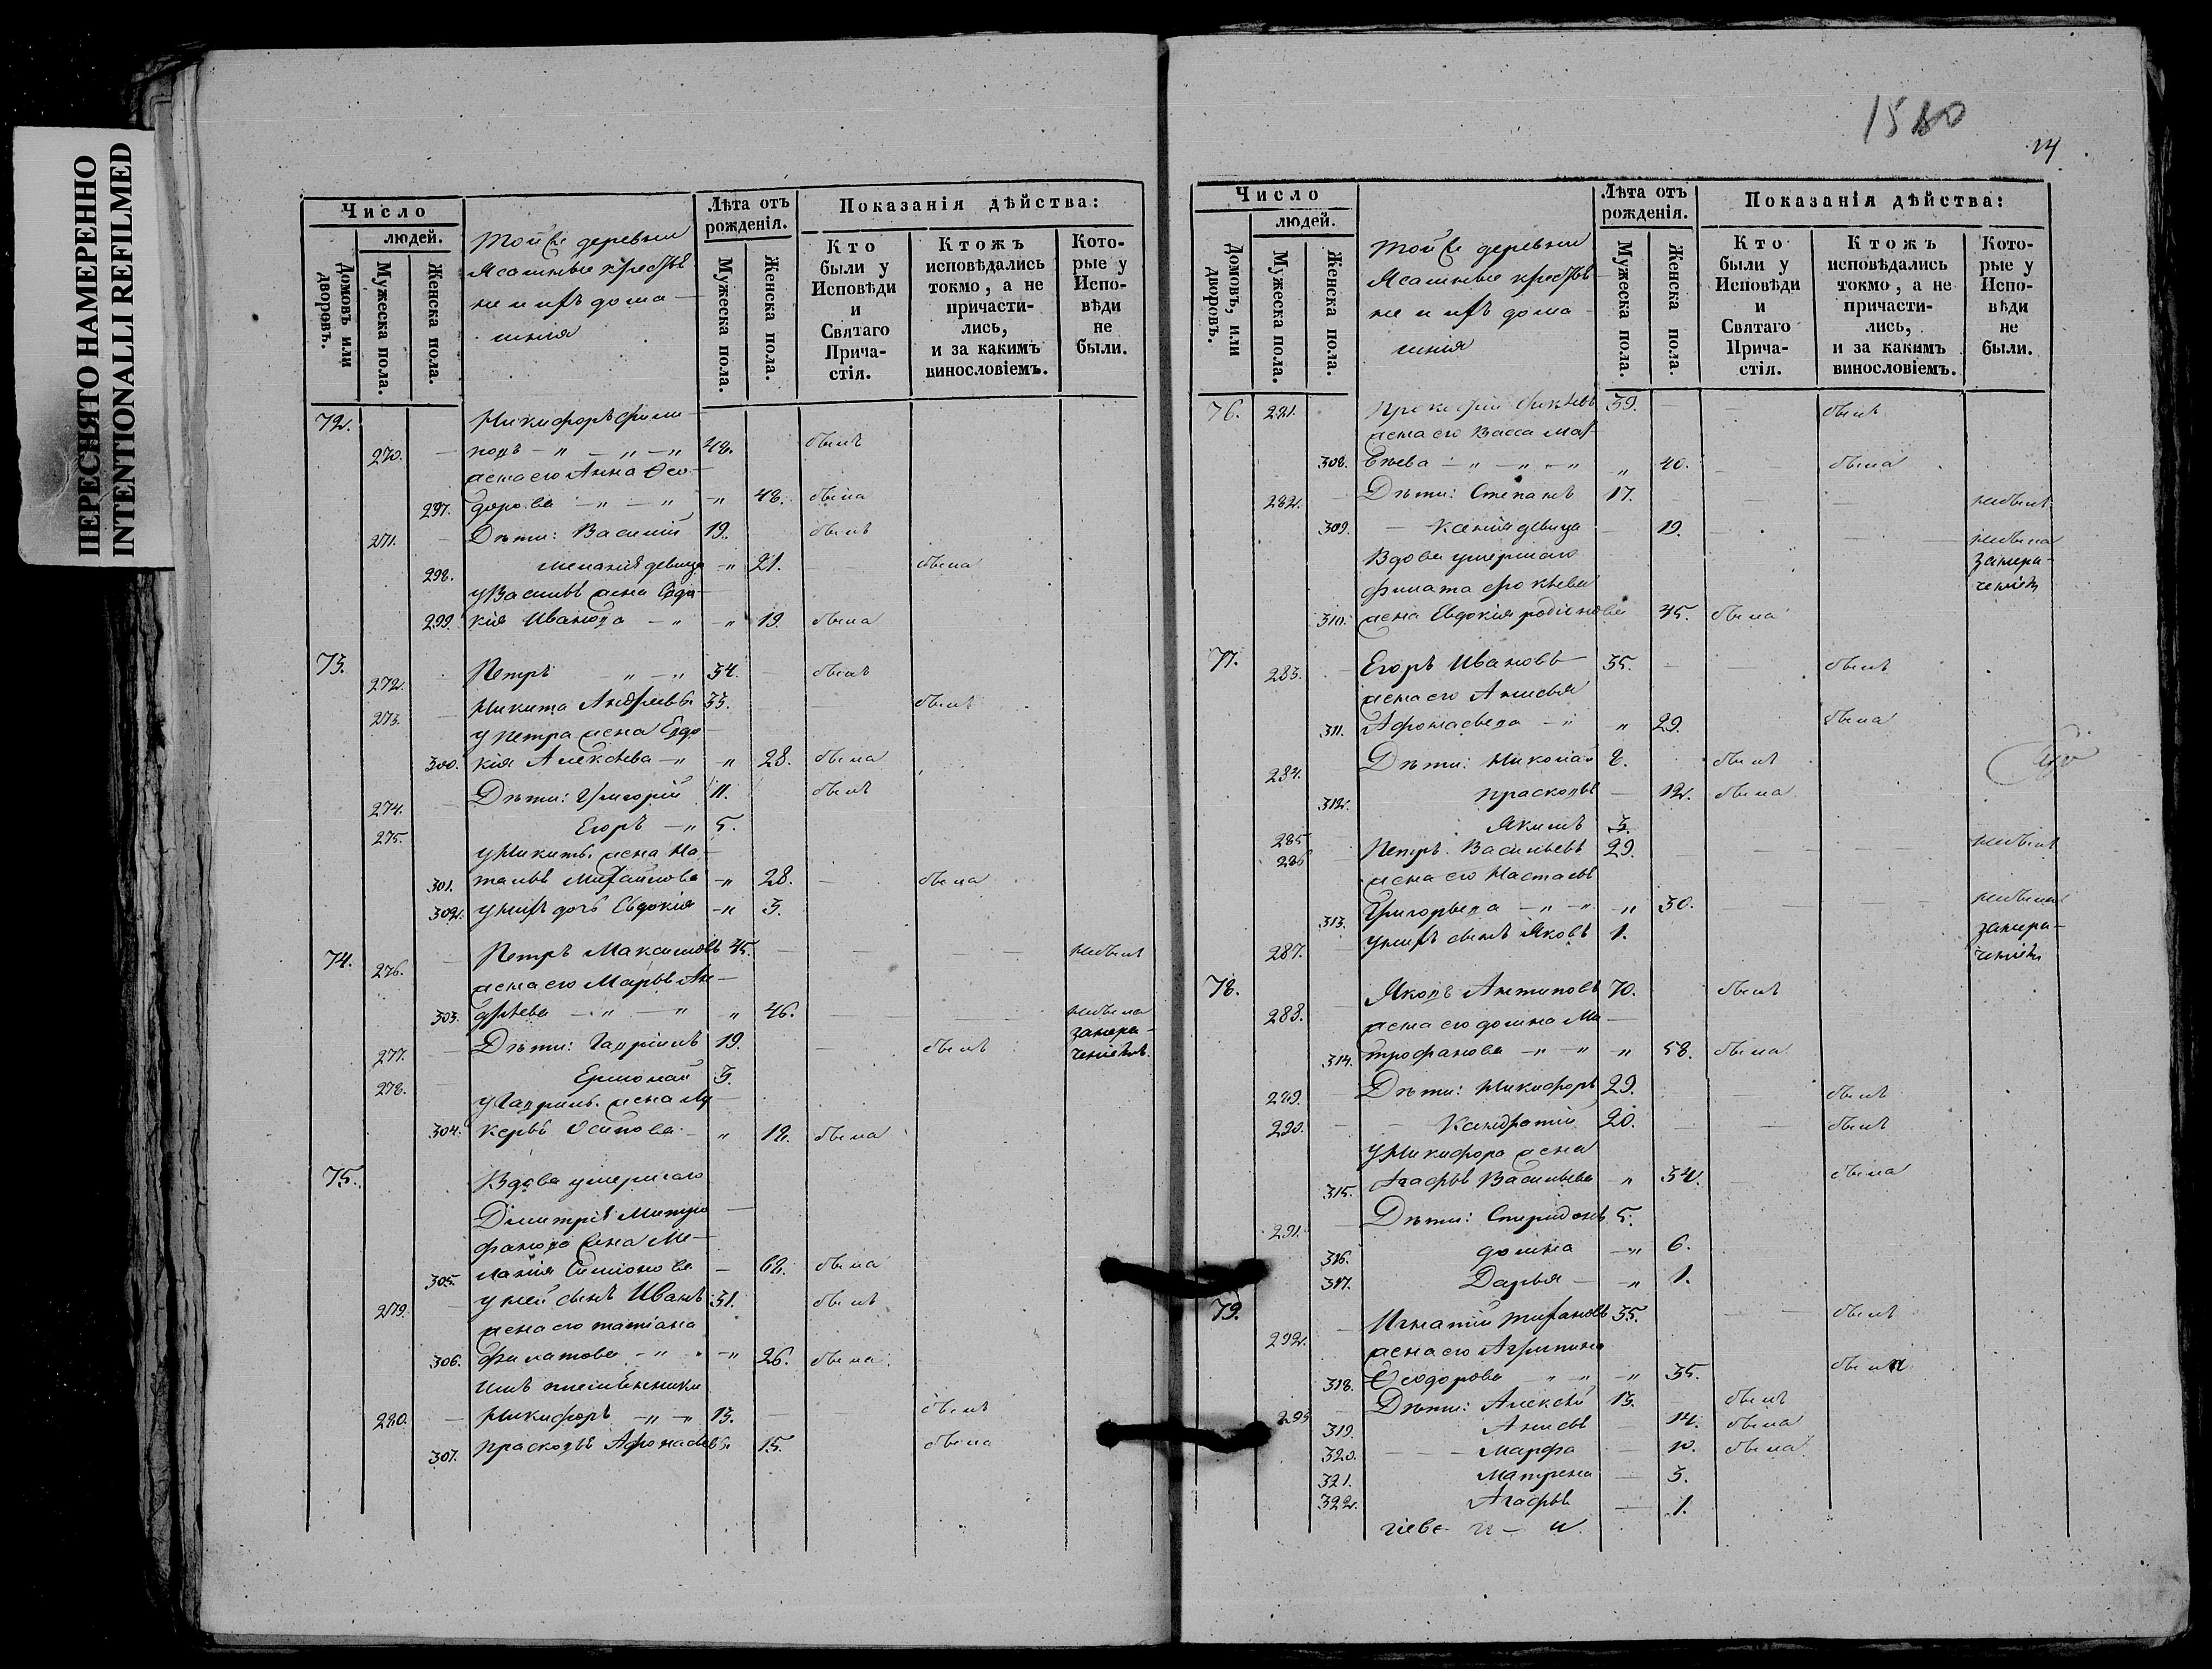 ПЕРЕСНЯТО НАМЕРЕННО
INTENTIONALLI REFILMED
Число
людей.
Домовъ или дворовъ.
Мужеска пола.
Женска пола.
Тойже деревни
Ясашные крестья
не и ихъ дома
шнія
Лѣта отъ рожденія.
Мужеска пола.
Женска пола.
Показанія дѣйства:
Кто были у Исповѣди и Святаго Прича-стія.
Ктожъ исповѣдались токмо, а не причасти-лись, и за какимъ винословіемъ.
Кото-рые у Испо-вѣди не были.
72. Никифоръ Фили
270. — повъ - „ - „ - „ 48. былъ
жена его Анна Ѳео
297. дорова - „ - „ „ 48. была
271. — Дѣти: Василий 19. былъ
298. меланія девица - „ 21. была
у Василья жена Евдо
299. кія Иванова - „ - „ 19. была
73. 272. Петръ - „ - „ 34. былъ
273. — Никита Андреевы 33. былъ
у петра жена Евдо
300. кія Алексѣева - „ „ 28. была
274. — Дѣти: Григорій 11. былъ
275. Егоръ - „ 5.
у Никиты жена На
301. талья Михайлова - „ 28. была
302. у нихъ дочь Евдокія - „ 3.
74. 276. — Петръ Максимовъ 45. небылъ
жена его Марья Ан
303. дрѣева - „ - „ „ 46. небыла
занера-
277. — Дѣти: Гавріилъ 19. былъ ченіемъ.
278. Ермолай 3.
у Гаврилы жена лу
304. керья Осипова „ 18. была
75. Вдова умершаго
Димитрія Митро
фанова жена Ме
305. ланія Симіонова — 68. была
279. — у ней сынъ Иванъ 31. былъ
жена его татіана
306. Филатова - „ - „ 26. была
ихъ племѣнники
280. — Никифоръ - „ - „ 13. былъ
307. прасковья Афонасьевы 15. была
1580
14
Число
людей.
Домовъ, или дворовъ.
Мужеска пола.
Женска пола.
Тойже деревни
Ясашные крестья
не и ихъ дома
шнія
Лѣта отъ рожденія.
Мужеска пола.
Женска пола.
Показанія дѣйства:
Кто были у Исповѣди и Святаго Прича-стія.
Ктожъ исповѣдались токмо, а не причасти-лись, и за какимъ винословіемъ.
Кото-рые у Испо-вѣди не были.
76. 281. Прокофій Фокѣевъ 39. былъ
жена его Васса Мат
308. вѣева - „ - „ - „ „ 40. была
282. — Дѣти: Степанъ 17. небылъ
309. — Ксенія девица — 19. небыла
Вдова умершаго занера-
Филата Фокѣева ченіемъ
310. жена Евдокія родіонова 45. была
77. 283. — Егоръ Ивановъ 35. былъ
жена его Анисья
311. Афонасьева - „ „ 29. была
284. Дѣти: Николай 8. былъ
312. прасковья — 12. была
285 Якимъ 3.
286 Петръ Васильевъ 29. небылъ
жена его Насталья
313. Григорьева - „ - „ - „ 30. небыла
287. — у нихъ сынъ Яковъ 1. занера-
ченіемъ
78. 288. — Яковъ Антиповъ 70. былъ
жена его домна Ми
314. трофанова - „ - „ „ 58. была
289. — Дѣти: Никифоръ 29. былъ
290. — Кандратій 20. былъ
у Никифора жена
315. Агафья Васильева „ 34. была
291. — Дѣти: Спиридонъ 5.
316. домна - „ 6.
317. Дарья - „ 1.
79. 292. — Игнатій Тихановъ 35. былъ
жена его Агрипина
318. Ѳеодорова - „ - „ - „ 35. была
293 — Дѣти: Алексѣй 13. былъ
319. Анисья — 14. была
320. — Марфа — 10. была
321. Матрена — 3.
322. Агафья — 1.